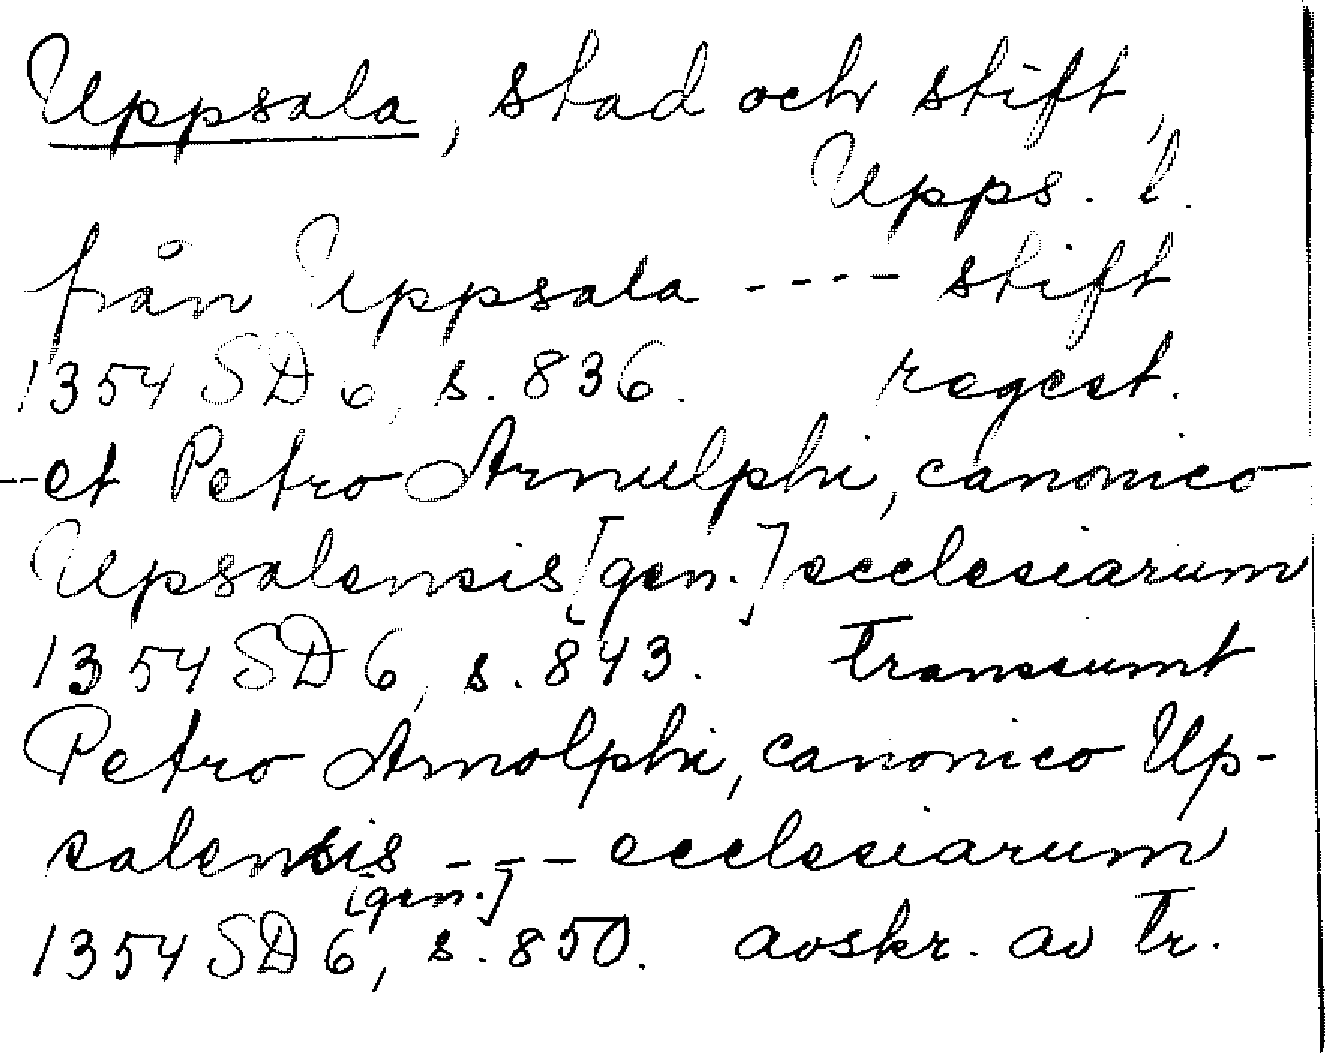 Uppsala, stad och stift,
Upps. l.
från Uppsala ---- stift
1354 SD 6, s. 836. regest.
--et Petro Arnulphi, canonico
Upsalensis [gen.] ecclesiarum
1354 SD 6, s. 843. Transsumt
Petro Arnolphi, canonico Up-
salensis --- ecclesiarum
[gen.]
1354 SD 6, s. 850. avskr. av Tr.